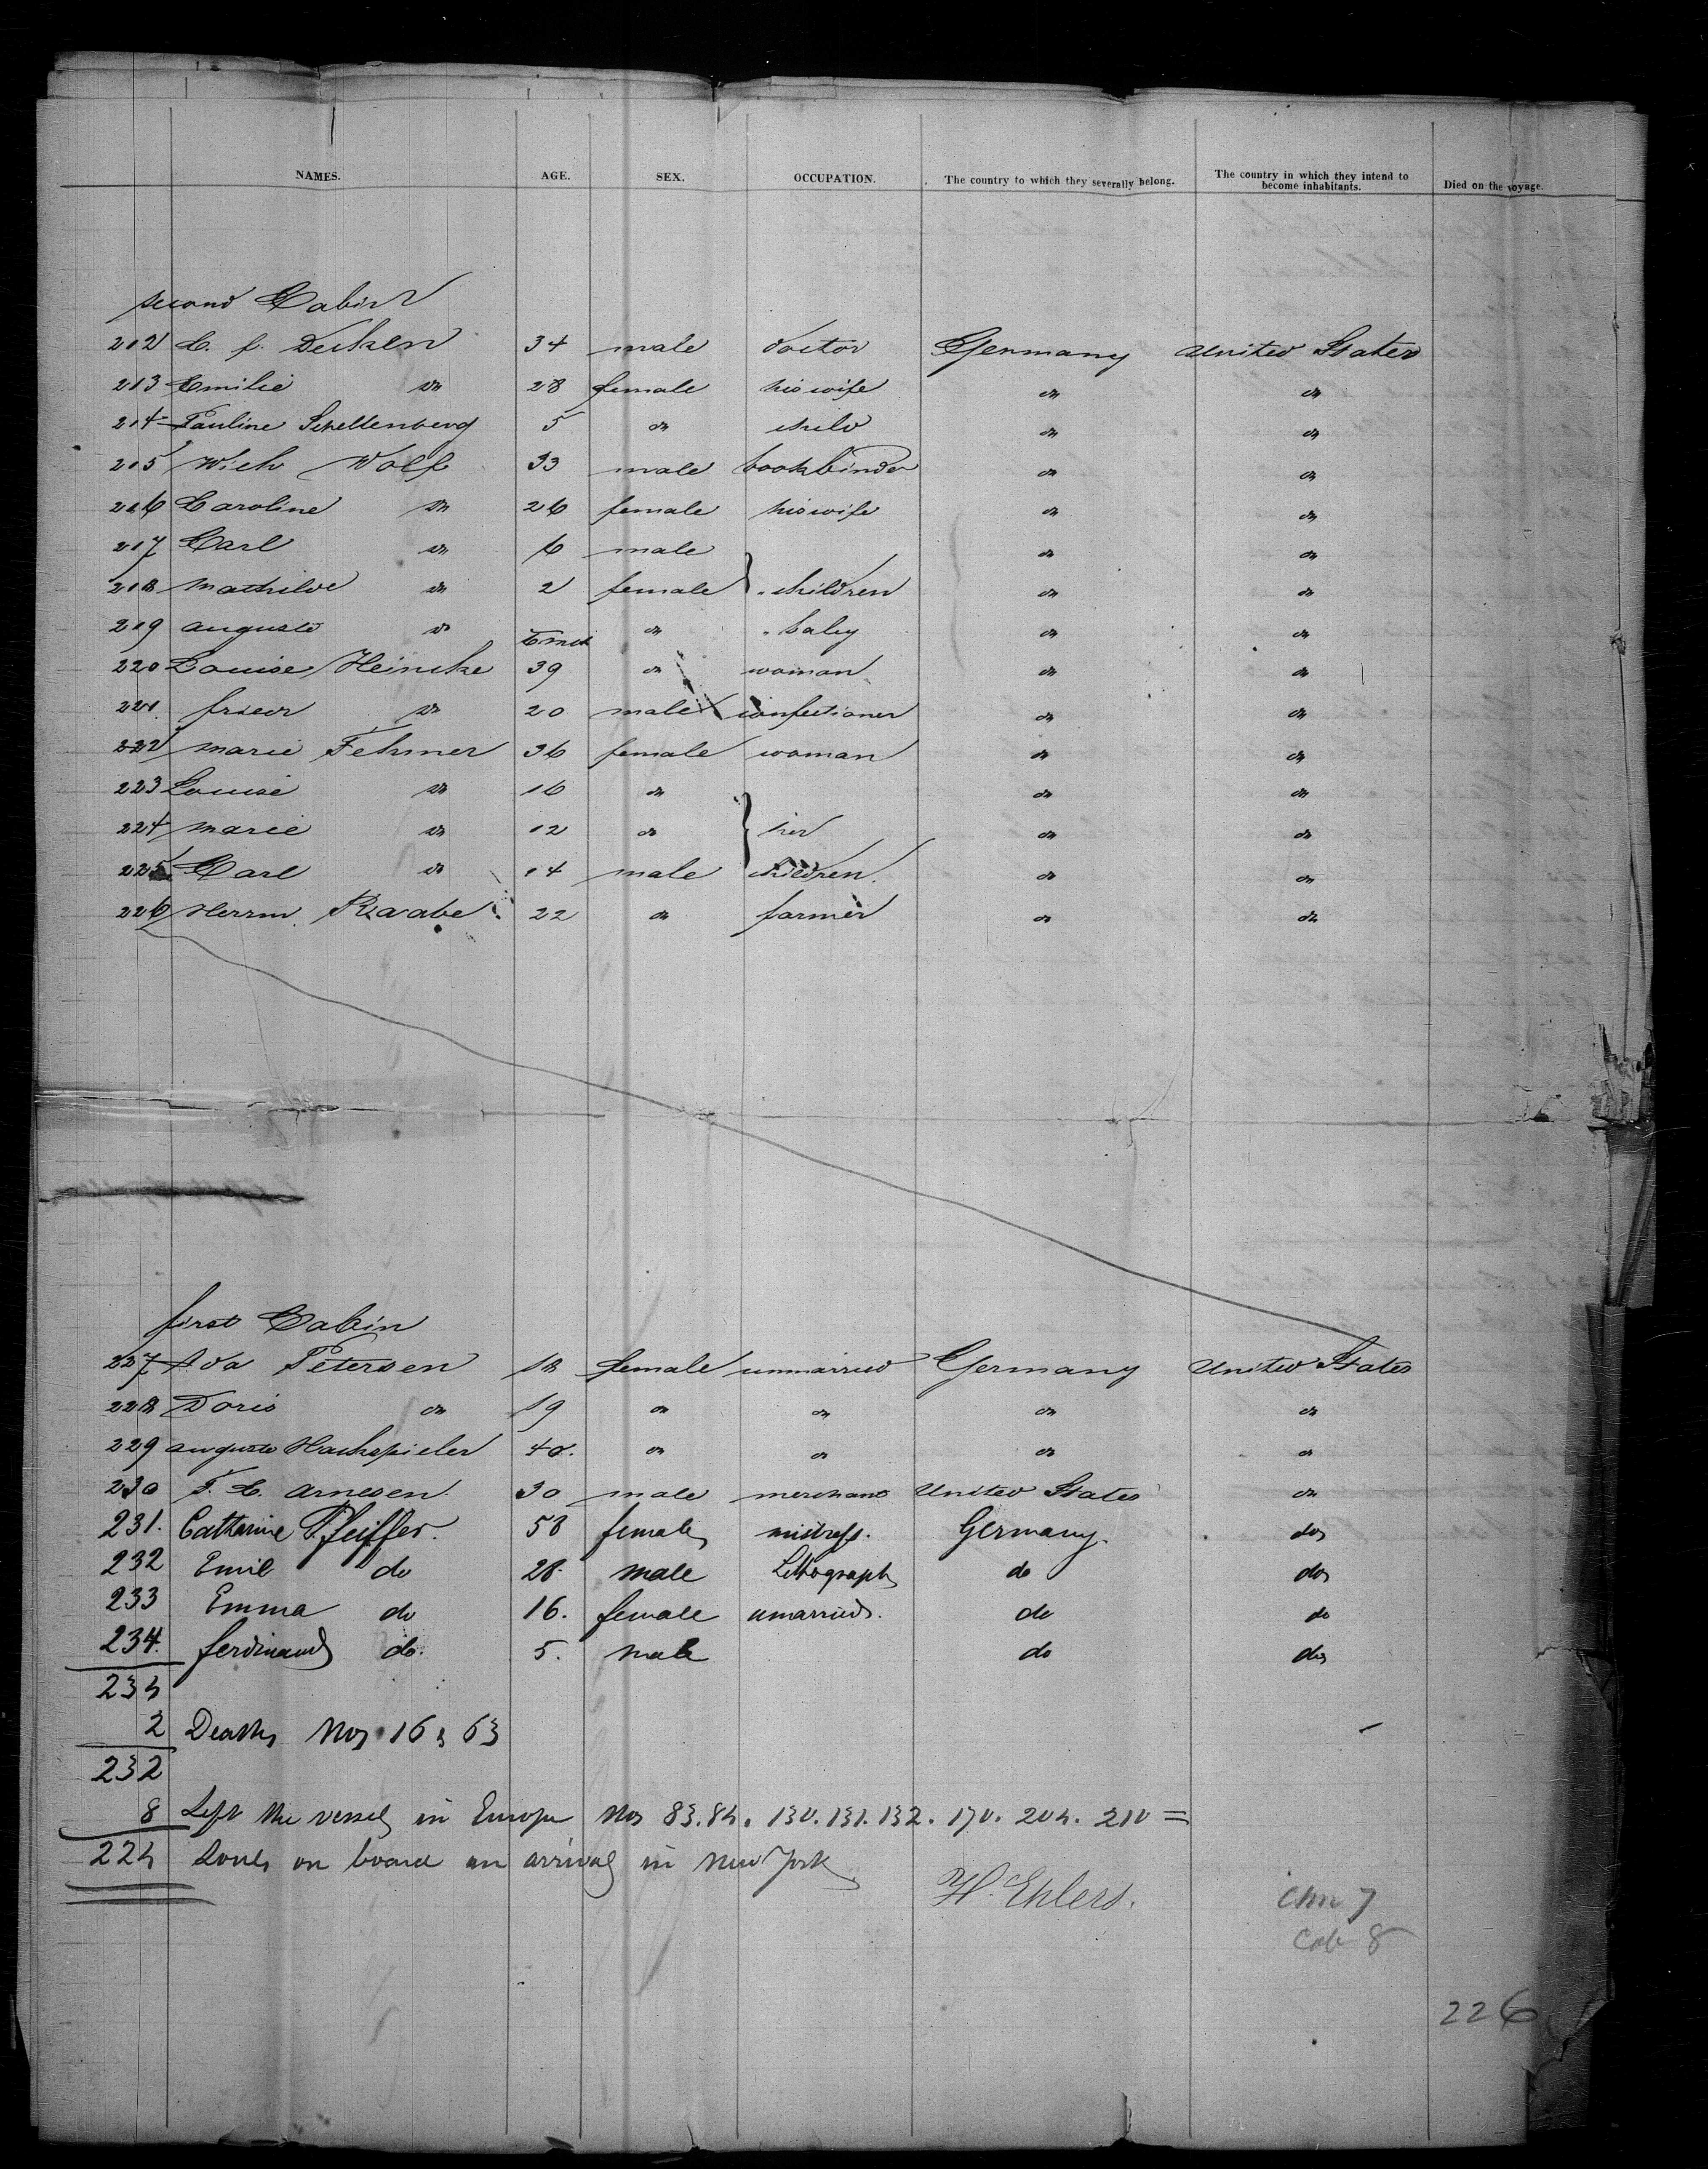 NAMES. AGE. SEX. OCCUPATION. The country to which they severally belong. The country in which they intend to become inhabitants. Died on the voyage.
second Cabin
212 C. f. Deiken 34 male doctor Germany United States
213 Emilie do 28 female his wife do do
214 Pauline Schellenberg 5 do child do do
215 Wilh Wolf 33 male bookbinder do do
216 Caroline do 26 female his wife do do
217 Carl do 6 male do do
218 Mathilde do 2 female } children do do
219 auguste do 6 mch do " baby do do
220 Louise Heinicke 39 do woman do do
221. friedr do 20 male confectioner do do
222 Marie Fehmer 36 female woman do do
223 Louise do 16 do do do
224 Marie do 12 do } her do do
225 Carl do 14 male children. do do
226 Herrm. Raabe 22 do farmer do do
first Cabin
227 Ada Petersen 18 female unmarried Germany United States
228 Doris do 19 do do do do
229 auguste Hachspieler 40. do do do do
230 F. C. Arnesen 30 male merchant United States do
231. Catharine Pfeiffer. 58 female mistress. Germany. do
232 Emil do 28. male Lithograph do do
233 Emma do 16. female unmarried. do do
234. ferdinand do. 5. male do do
234
2 Deaths Nos 16 & 63
232
8 Left the vessel in Europe Nos 83. 84. 130. 131. 132. 170. 204. 210 =
224 Souls on board on arrival in New York
H. Ehlers.
Chn 7
Cab 8
226